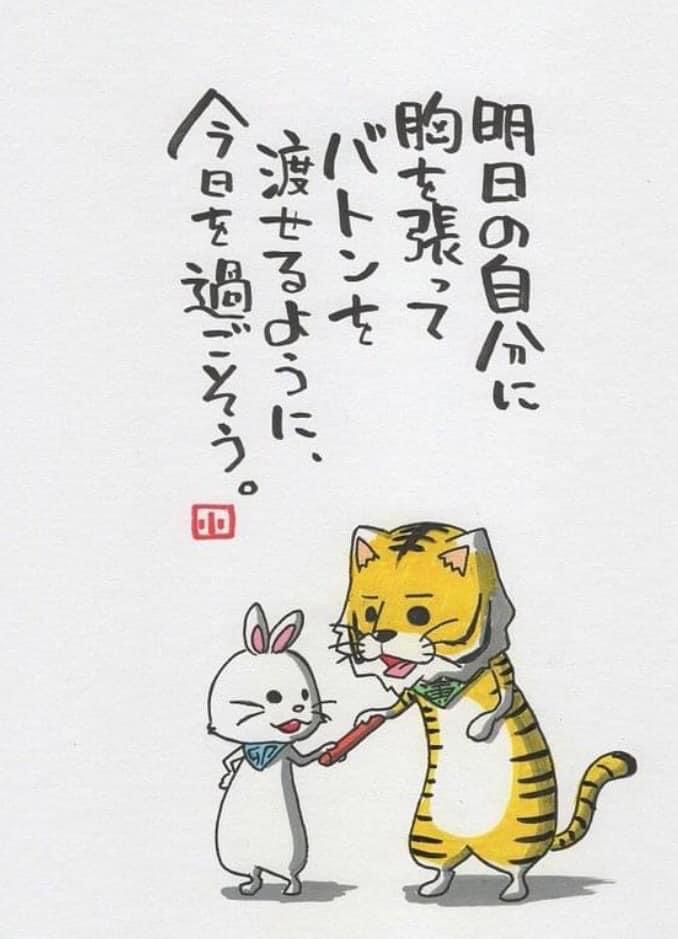 明日の自分に
胸を張って
バトンを
渡せるように、
今日を過ごそう。
小